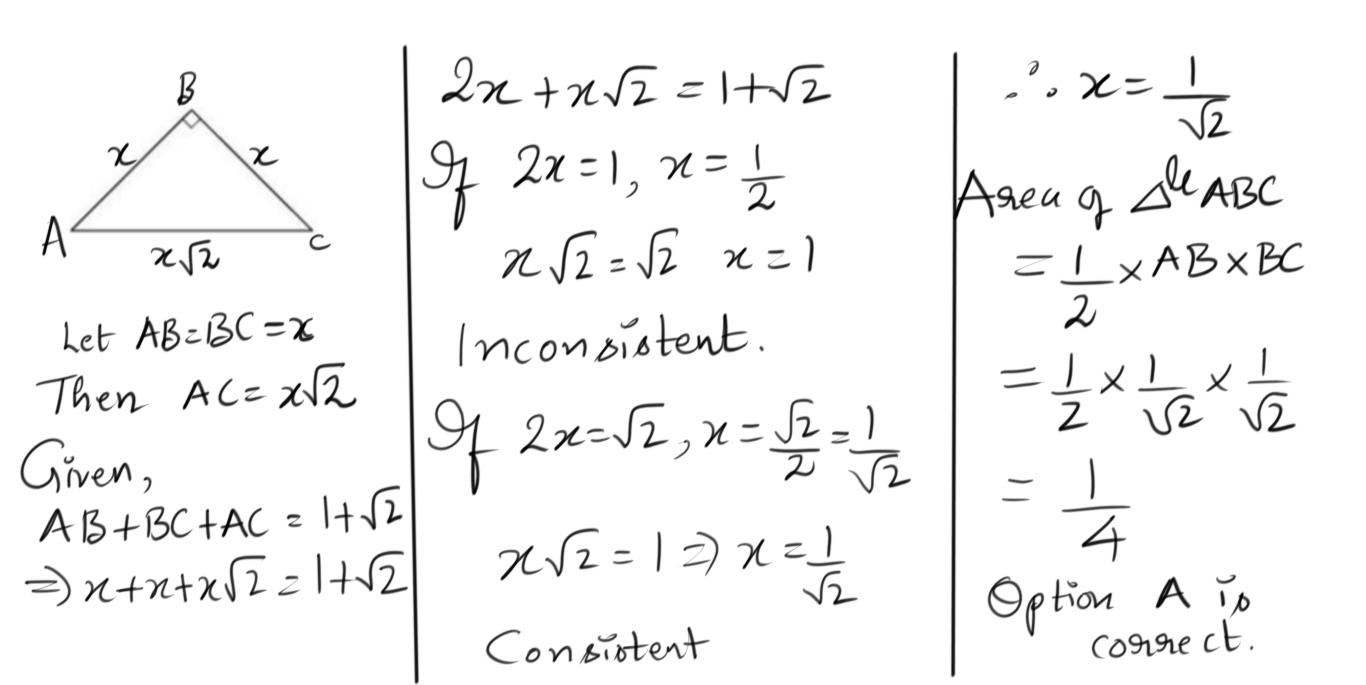 B
x x
A C
x√2
Let AB=BC=x
Then AC=x√2
Given,
AB+BC+AC = 1+√2
⇒ x+x+x√2 = 1+√2
2x+x√2 = 1+√2
If 2x=1, x=1/2
x√2=√2 x=1
Inconsistent.
If 2x=√2, x=√2/2=1/√2
x√2=1 ⇒ x=1/√2
Consistent
∴ x=1/√2
Area of Δle ABC
=1/2×AB×BC
=1/2×1/√2×1/√2
=1/4
Option A is
correct.